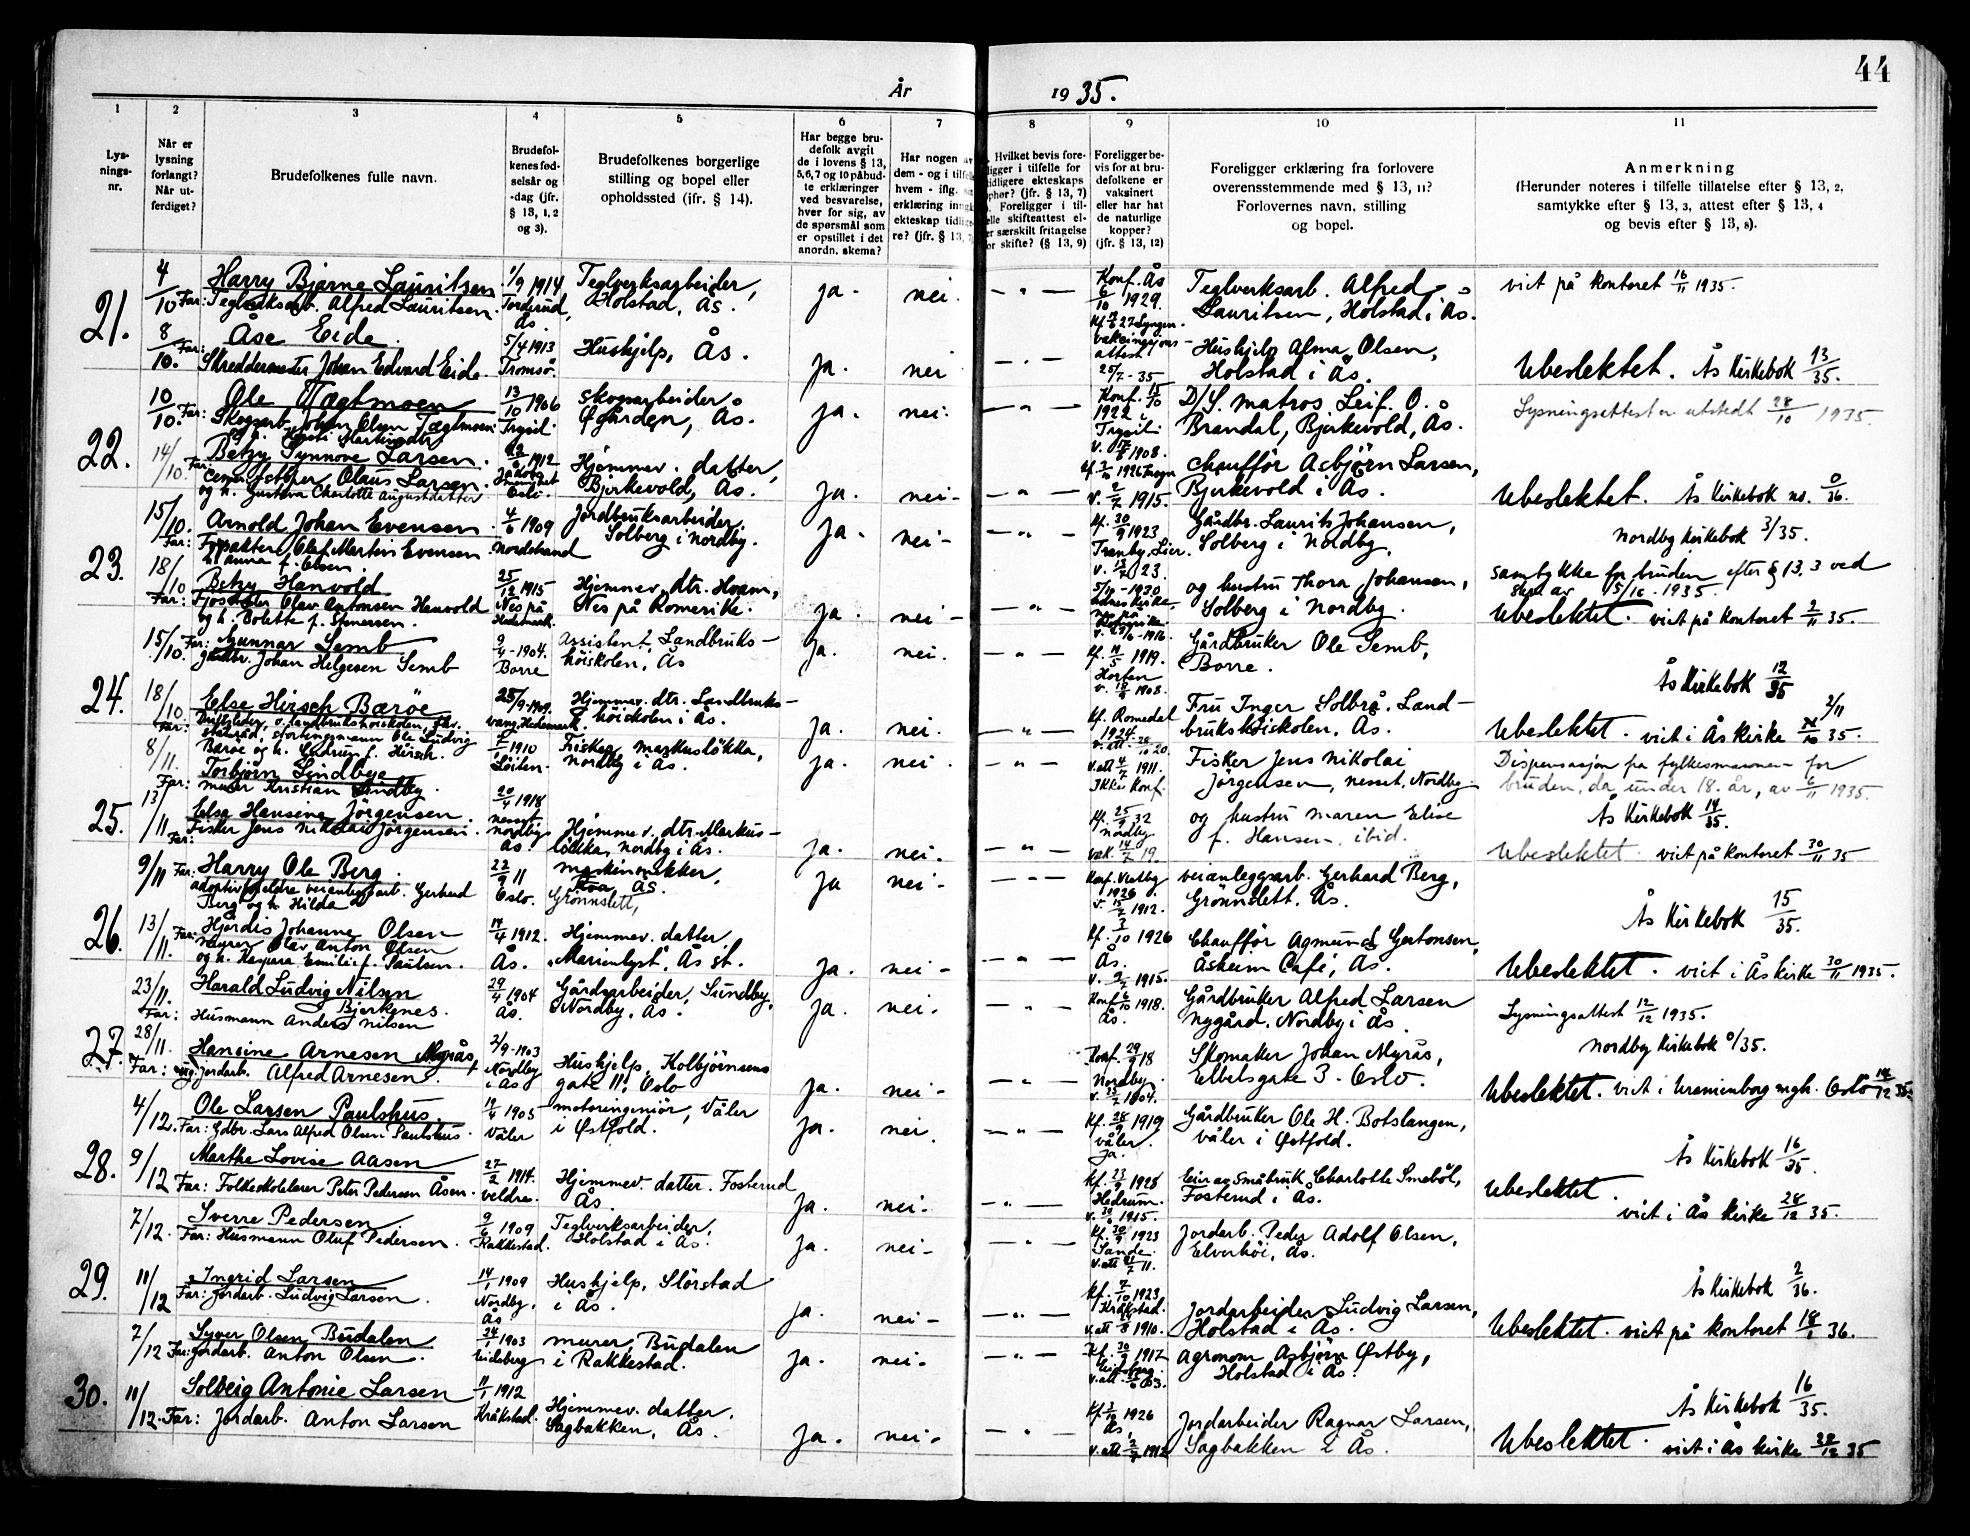 44
År 1935.
1
Lys-
nings-
nr.
2
Når er
lysning
forlangt?
Når ut-
ferdiget?
3
Brudefolkenes fulle navn.
4
Brudefol-
kenes fød-
selsår og
-dag (jfr.
§ 13, 1, 2
og 3).
5
Brudefolkenes borgerlige
stilling og bopel eller
opholdssted (ifr. § 14).
6
Har begge bru-
defolk avgit
de i lovens § 13,
5,6,7 og 10 påbud-
te erklæringer
ved besvarelse,
hver for sig, av
de spørsmål som
er opstillet i det
anordn. skema?
7
Har nogen av
dem - og i tilfelle
hvem - iflg.
erklæring inngå
ekteskap tidlige-
re? (jfr. § 13,
8
Hvilket bevis fore-
ligger i tilfelle for
tidligere ekteskaps
ophør? (jfr. § 13, 7)
Foreligger i til-
elle skifteattest el-
er særskilt fritagelse
or skifte? (§ 13, 9)
9
Foreligger be-
vis for at bru-
defolkene er
vaksinert
eller har hat
de naturlige
kopper?
(jfr. § 13, 12)
10
Foreligger erklæring fra forlovere
overensstemmende med § 13, 11?
Forlovernes navn, stilling
og bopel.
11
Anmerkning
(Herunder noteres i tilfelle tillatelse efter § 13, 2,
samtykke efter § 13, 3, attest efter § 13, 4
og bevis efter § 13, 8).
21.
4/10 Harry Bjarne Lauritsen 1/9 1914 Teglverksarbeider, ja. nei. - " - Konf. Ås Teglverksarb. Alfred viet på kontoret 16/11 1935.
Far: Teglverksarb. Alfred Lauritsen. Torderud, Ås. Holstad, Ås. 6/10 1929. Lauritsen, Holstad i Ås.
8/10. Åse Eide. 5/4 1913 Hushjelp, Ås. Ja. nei - " - Hushjelp Alma Olsen,
Far: Skreddermester Johan Edvard Eide. Tromsö. attest 25/7-35 Holstad i Ås. Ubeslektet. Ås Kirkebok 13/35.
22.
10/10. Ole Tægtmoen 13/10 1906 Skogsarbeider ja. nei. - " - Konf. 15/10 1922 i D/S. matros Leif O. Lysningsattest er utstedt 28/10 1935.
Far: Skogsarb. Johan Olsen Tægtmoen Trysil Ås. Trysil. Brandal, Bjerkevold, Ås.
14/10 Betzy Synnøve Larsen. 1912 Hjemmev. datter, Ja. nei - - " - Chaufför Asbjörn Larsen,
Far: Cementstöper Olaus Larsen. Oslo. Bjerkevold, Ås. v. 2/7 1915. Bjerkevold i Ås. Ubeslektet. Ås Kirkebok no. 0/36.
og h. Gustava Charlotte Augustdatter
23.
15/10. Arnold Johan Evensen 4/6 1909 Jordbruksarbeider. Ja. nei - - " - kf. 30/9 1923 Gårdbr. Laurits Johansen, Nordby Kirkebok 3/35.
Far: Olaf Martin Evensen Nordstrand Solberg i Nordby. Tranby, Lier. Solberg i Nordby.
18/10 Betzy Hanvold 25/12 1915 Hjemmev. dtr. Hvam, Ja. nei - - " - 5/10-1930 og hustru Thora Johansen, samtykke for bruden efter § 13. 3 ved
Far: Olav Antonsen Hanvold Nes på Hedemark. Nes på Romerike. v. 29/6-1916. Solberg i Nordby. Ubeslektet. viet på kontoret 2/11 35.
24.
15/10. Gunnar Semb 9/4-1904. Assistent v. Landbruks- Ja. nei. - " - kf. 11/5 1919. Gårdbruker Ole Semb,
Far: gårdbr. Johan Helgesen Semb Borre höiskolen, Ås Horten Borre. Ås Kirkebok 12/35
18/10. Else Hirsch Bæröe 25/9-1909. Hjemmev. dtr. Landbruks- Ja. nei. - " - kf. Romedal 1924. Fru Inger Solbrå, Land-
Far: statsråd, stortingsmann Ole Ludvig vang, Hedemark höiskolen i Ås. brukshöiskolen, Ås. Ubeslektet. viet i Ås kirke 2/11 35.
Bæröe og h. Gudrun f. Hirsch.
25.
8/11. Torbjörn Lindbye 1910 Fisker, Markuslökka, Ja. nei. - " - v.att 4/7 1911. Fisker Jens Nikolai Dispensasjon fra fylkesmannen for
Far: murer Kristian Lindby. Löiten. Nordby i Ås. Ikke Konf. Jörgensen, nesset, Nordby bruden, da under 18. år, av 6/11 1935.
13/11 Elsa Hansine Jörgensen. 20/4 1918 Hjemmev. dtr. Markus- Ja. nei. - " - kf. 25/9 32 Nordby og hustru Maren Elise Ås Kirkebok 14/35.
Far: Fisker Jens Nikolai Jörgensen. nesset Nordby Ås. lökka, Nordby i Ås. vak. 14/7 19. f. Hansen, ibid. Ubeslektet. viet på kontoret 30/11 35
26.
9/11 Harry Ole Berg. 22/9 11 Maskinsnekker, Ja nei - - " - Konf. Vestby 1926 veianleggsarb. Gerhard Berg,
Far: adoptivforeldre veianleggsarb. Gerhard Oslo. Ås. Grönnslett, v. 15/7 1912. Grönnslett, Ås. Ås Kirkebok 15/35.
Berg og h. Hilda
13/11. Hjördis Johanne Olsen 14/4 1912. Hjemmev. datter, Ja. nei - - " - kf. 3/10 1926 Ås. Chaufför Agmund Gertonsen,
Far: murer Olav Anton Olsen Ås. "Marienlyst", Ås st. 1915. Åsheim Café, Ås. Ubeslektet. viet i Ås kirke 30/11 1935.
og h. Kaspara Emilie f. Paulsen.
27.
23/11. Harald Ludvig Nilsen Bjerknes. 29/4 1904 Gårdsarbeider, Sundby, Ja. nei. - " - Konf. 6/10 1918. Gårdbruker Alfred Larsen Lysningsattest 12/12 1935.
Far: Husmann Anders Nilsen Ås. Nordby, Ås. Ås. Nygård, Nordby i Ås. Nordby Kirkebok 0/35.
28/11. Hansine Arnesen Myrås, 2/9-1903 Hushjelp, Kolbjörnsens Ja. nei - - " - Konf. 29/9 18 Skomaker Johan Myrås,
Far: Jordarb. Alfred Arnesen. Nordby i Ås gate 11, Oslo Nordby. v. 25/7 1904. Eilertsgate 3. Oslo. Ubeslektet. viet i Uranienborg mgh. Oslo 14/12 35.
28.
4/12. Ole Larsen Paulshus. 19/4 1905 motoringeniör, Våler Ja. nei. - " - kf. 28/9 1919 Gårdbruker Ole H. Botslangen,
Far: Gdbr. Lars Alfred Olsen Paulshus. Våler i Östfold. Våler. Ja. Våler i Östfold. Ås Kirkebok 16/35.
9/12 Marthe Lovise Aasen 27/2 1914. Hjemmev. datter. Fosterud Ja. nei. - " - kf. 23/9 1928 Eier av småbruk Charlotte Smeböl, Ubeslektet.
Far: Folkeskolelærer Peter Pedersen Åsen. Veldre. Ås. Hedrum. 1915. Fosterud i Ås. viet i Ås Kirke 28/12 35.
29.
7/12. Sverre Pedersen 9/6 1909 Teglverksarbeider, Ja. nei - - " - kf. 30/9 1923 Jordarb. Peder Adolf Olsen,
Far: Husmann Oluf Pedersen. Rakkestad. Holstad i Ås. Sande. Elverhöi, Ås.
11/12 Ingrid Larsen 14/1 1909 Hushjelp, Störstad Ja. nei - - " - kf. 7/10 1923 Kråkstad. Jordarbeider Ludvig Larsen, Ås Kirkebok 2/36.
Far: Jordarb. Ludvig Larsen. Nordby, Ås i Ås. v.att 1910. Holstad i Ås. Ubeslektet. viet på kontoret 18/1 36.
30.
7/12 Syver Olsen Budalen 24/1 1903 murer, Budalen Ja. nei. - " - kf. 30/9 1917 Agronom Asbjörn Östby,
Far: Jordarb. Anton Olsen. Eidsberg i Rakkestad. Eidsberg. Holstad i Ås.
11/12. Solveig Antonie Larsen 11/1 1912 Hjemmev. datter. Ja. nei. - " - kf. 3/10 1926 Ås, Jordarbeider Ragnar Larsen, Ås Kirkebok 16/35.
Far: Jordarb. Anton Larsen Kråkstad. Sagbakken, Ås. v.att 2/7 1912 Sagbakken i Ås. Ubeslektet. viet i Ås kirke 28/12 35